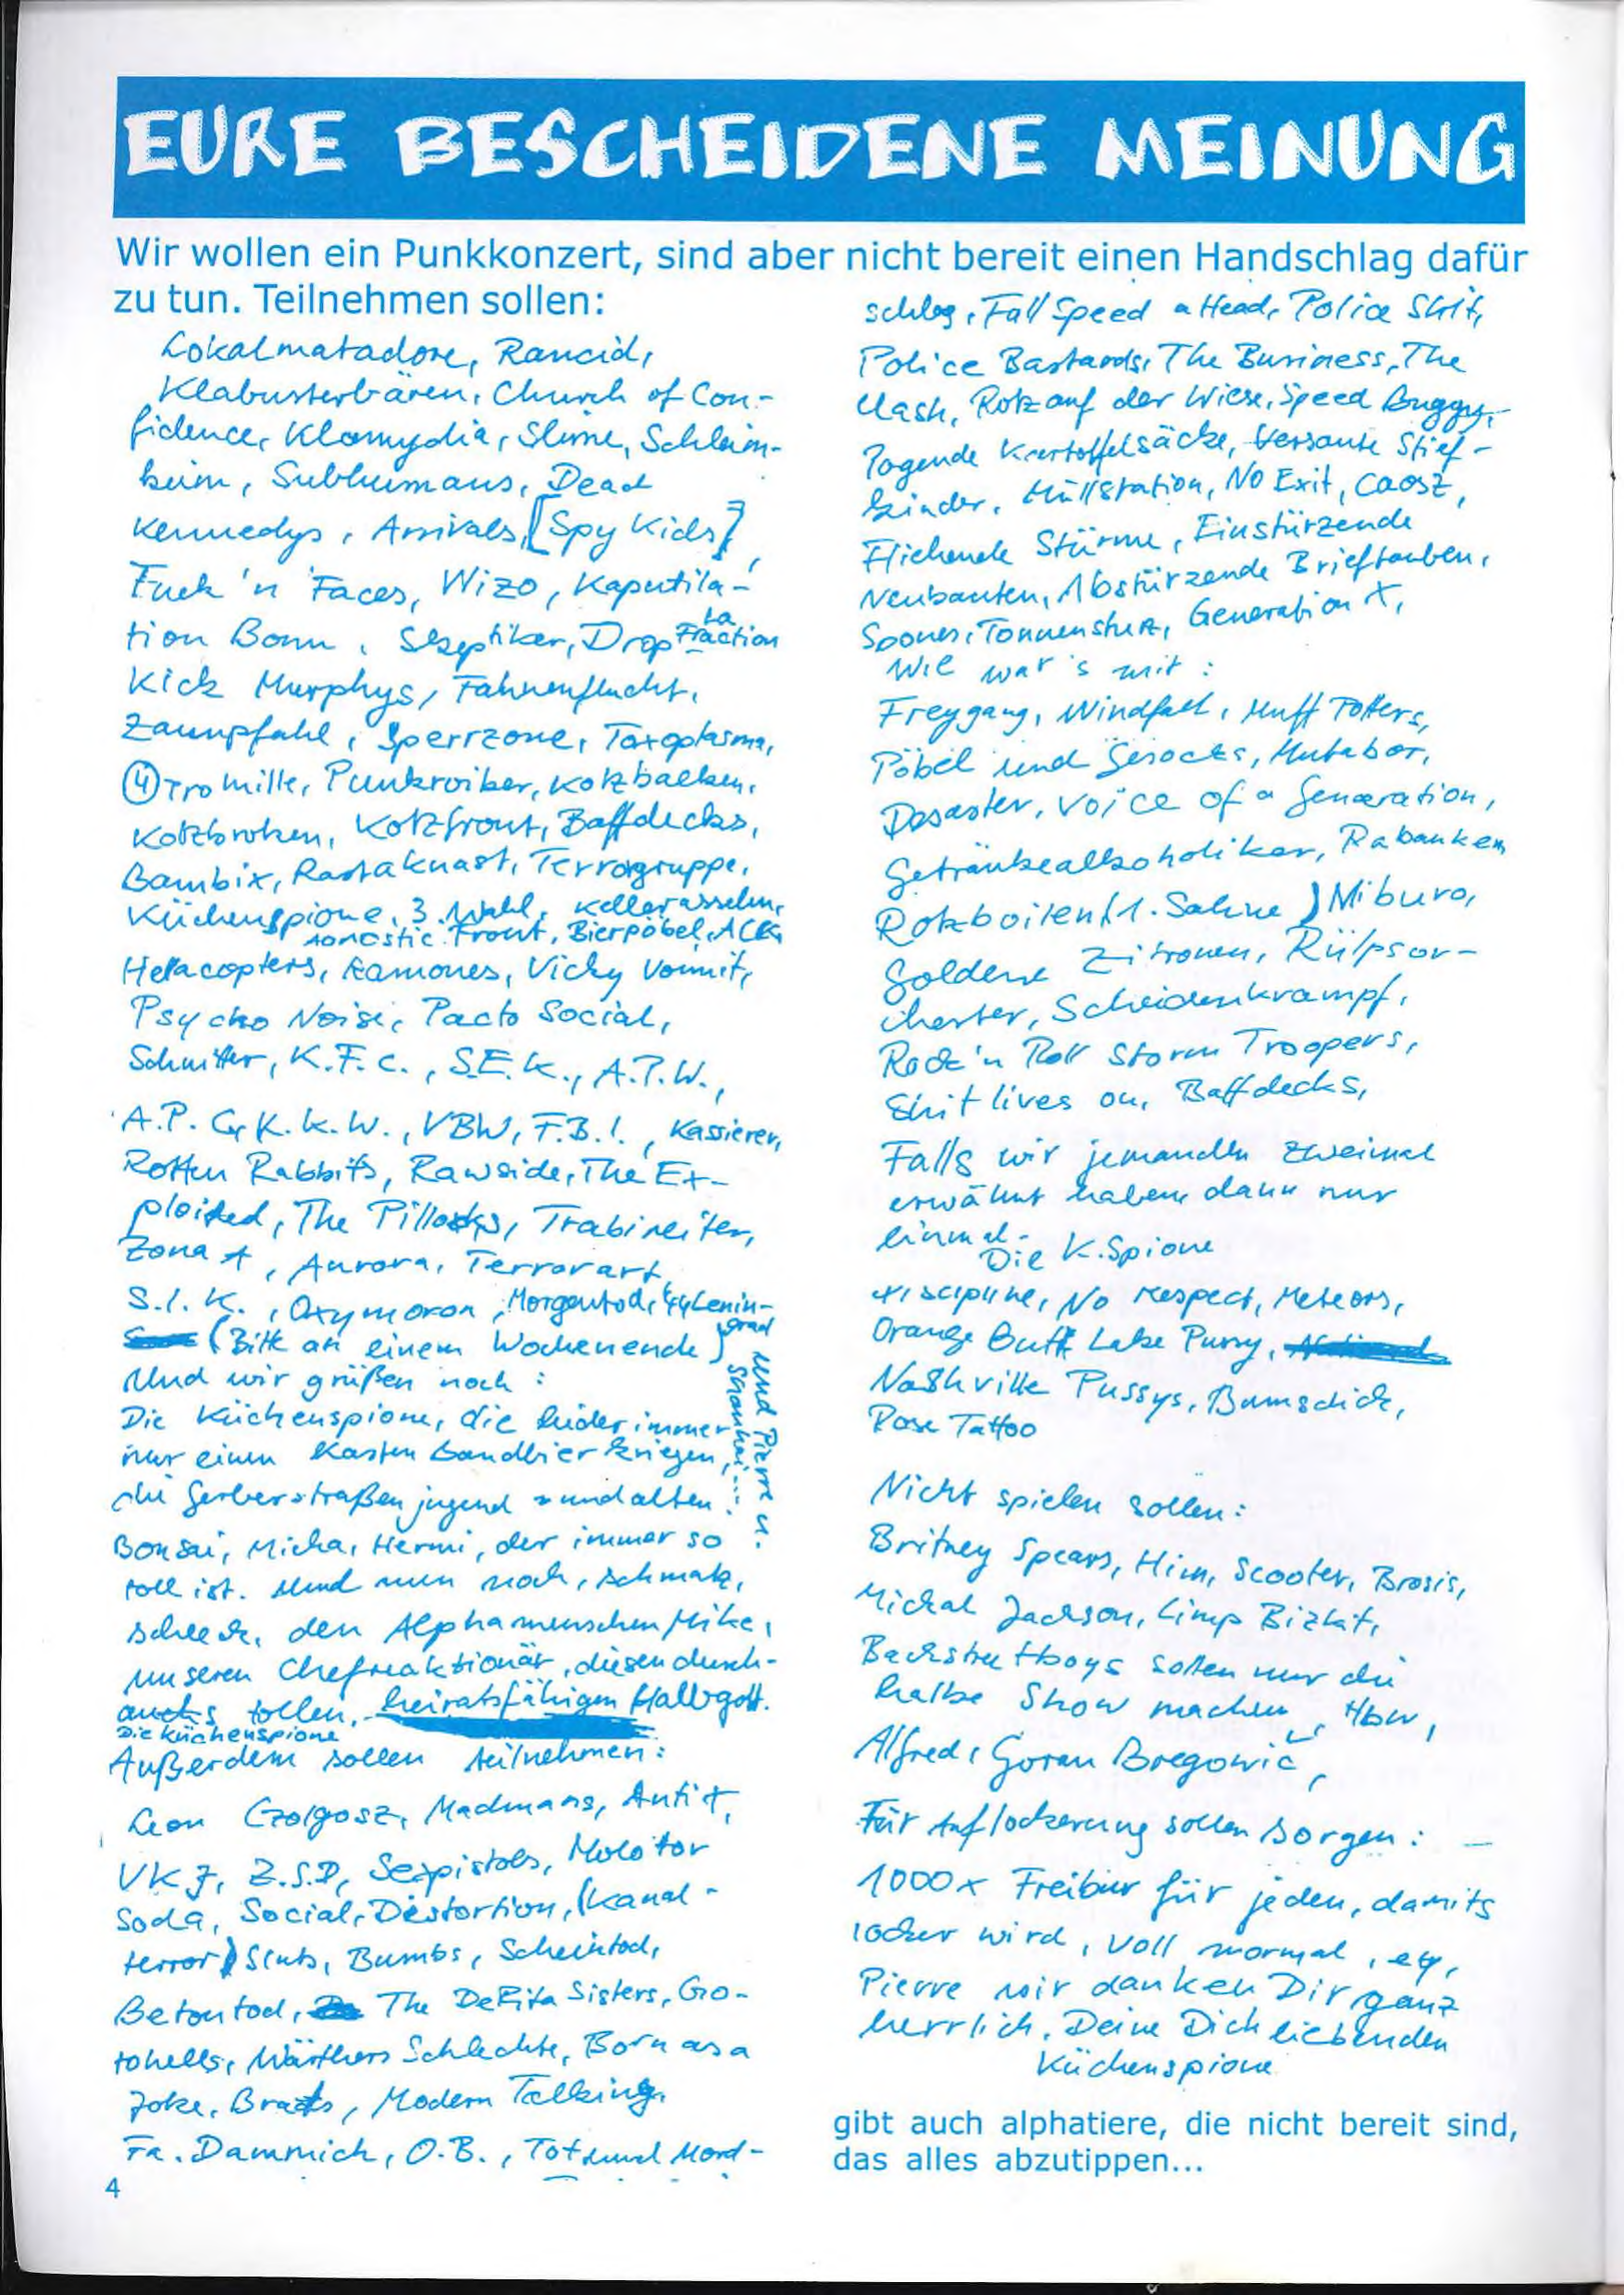 EURE BESCHEIDENE MEINUNG
Wir wollen ein Punkkonzert, sind aber nicht bereit einen Handschlag dafür
zu tun. Teilnehmen sollen:
Lokalmatadore, Rancid,
Klabusterbären, Church of Con-
fidence, Klamydia, Slime, Schleim-
keim, Subhumans, Dead
Kennedys, Arrivals, [Spy Kids],
Fuck 'n Faces, Wizo, Kaputila-
tion Bonn, Skeptiker, Drop La Fraction
Kick Murphys, Fahnenflucht,
Zaunpfahl, Sperrzone, Toxoplasma,
4 Promille, Punkroiber, Kotzbacken,
Kotzbroken, Kotzfront, Baffdecks,
Bambix, Rastaknast, Terrorgruppe,
Küchenspione, 3. Wahl, Kellerasseln,
Agnostic Front, Bierpöbel, ACK,
Hellacopters, Ramones, Vicky Vomit,
Psycho Noise, Pacto Social,
Schnitter, K.F.C., S.E.K., A.P.W.,
A.P. G, K.K.W., VBW, F.B.I., Kassierer,
Rotten Rabbits, Rawside, The Ex-
ploited, The Pillocks, Trabireiter,
Zona A, Aurora, Terrorart,
S.I.K., Oxymoron, Morgentod, Lenin-
grad
(Bitte an einem Wochenende)
Und wir grüßen noch:
Die Küchenspione, die leider immer
nur einen Kasten Bandbier kriegen,
die Gerberstraßenjugend und alten
Bonsai, Micha, Hermi, der immer so
toll ist. Und nun noch, schmatz,
schleck, den Alphamenschen Mike,
und Pierre u.
unseren Chefreaktionär, diesen durch-
aus tollen, heiratsfähigen Halbgott.
Die Küchenspione
Außerdem sollen teilnehmen:
Leon Czolgosz, Madmans, Anti X,
VKJ, Z.S.D, Sexpistols, Molotov
Soda, Social Distortion, (Kanal-
terror) Sluts, Bumbs, Scheintod,
Betontod, The DeRita Sisters, Go-
tohells, Wärthers Schlechte, Born as a
Joke, Brats, Modern Talking,
Fa. Dammich, O.B., Tot und Mord-
schlag, Fall Speed a Head, Police Shit,
Police Bastards, The Business, The
Clash, Rotz auf der Wiese, Speed Buggy,
Pogende Kartoffelsäcke, Versaute Stief-
kinder, Müllstation, No Exit, Caosz,
Fliehende Stürme, Einstürzende
Neubauten, Abstürzende Brieftauben,
Spoones, Tonnensturz, Generation X,
Wie wär's mit:
Freygang, Windfall, Muff Potters,
Pöbel und Gesocks, Mutabor,
Desaster, Voice of a Generation,
Getränkealkoholiker, Rabauken
Rotzboiten (1. Sahne) Miburo,
Goldene Zitronen, Rülpsor-
chester, Scheidenkrampf,
Rock'n Roll Storm Troopers,
Shit lives on, Baffdecks,
Falls wir jemanden zweimal
erwähnt haben, dann nur
einmal.
Die K.Spione
Discipline, No Respect, Meteors,
Orange Butt Lake Pussy,
Nashville Pussys, Bumsdick,
Rose Tattoo
Nicht spielen sollen:
Britney Spears, Him, Scooter, Brosis,
Michal Jackson, Limp Bizkit,
Backstreetboys sollen nur die
halbe Show machen, Hbw,
Alfred, Goran Bregović,
Für Auflockerung sollen sorgen: —
1000x Freibier für jeden, damits
locker wird, voll normal, ey,
Pierre wir danken Dir ganz
herrlich, Deine Dich liebenden
Küchenspione
gibt auch alphatiere, die nicht bereit sind,
das alles abzutippen...
4